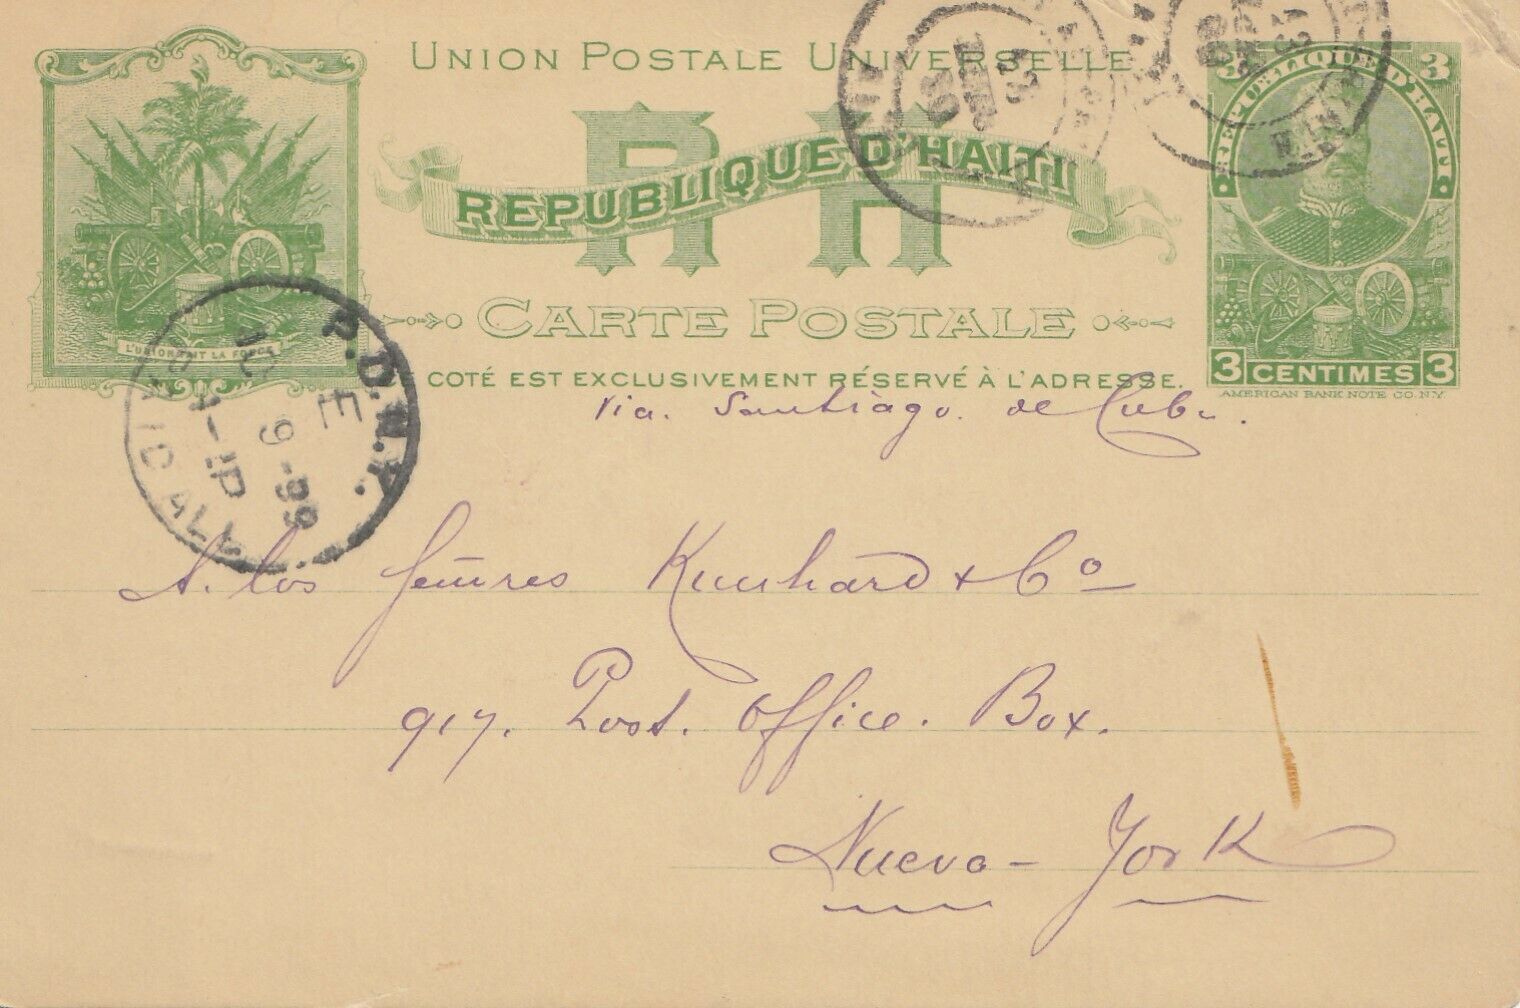 UNION POSTALE UNIVERSELLE
RH
REPUBLIQUE D'HAITI
CARTE POSTALE
COTÉ EST EXCLUSIVEMENT RÉSERVÉ À L'ADRESSE.
L'UNION FAIT LA FORCE
3 3
REPUBLIQUE D'HAITI
3 CENTIMES 3
AMERICAN BANK NOTE CO. N.Y.
P.D.N.Y.
E
10 9-99
1-1P
Via. Santiago. de Cuba.
A. los Señores Kunhard & Co
917. Post. Office. Box.
Nueva-York